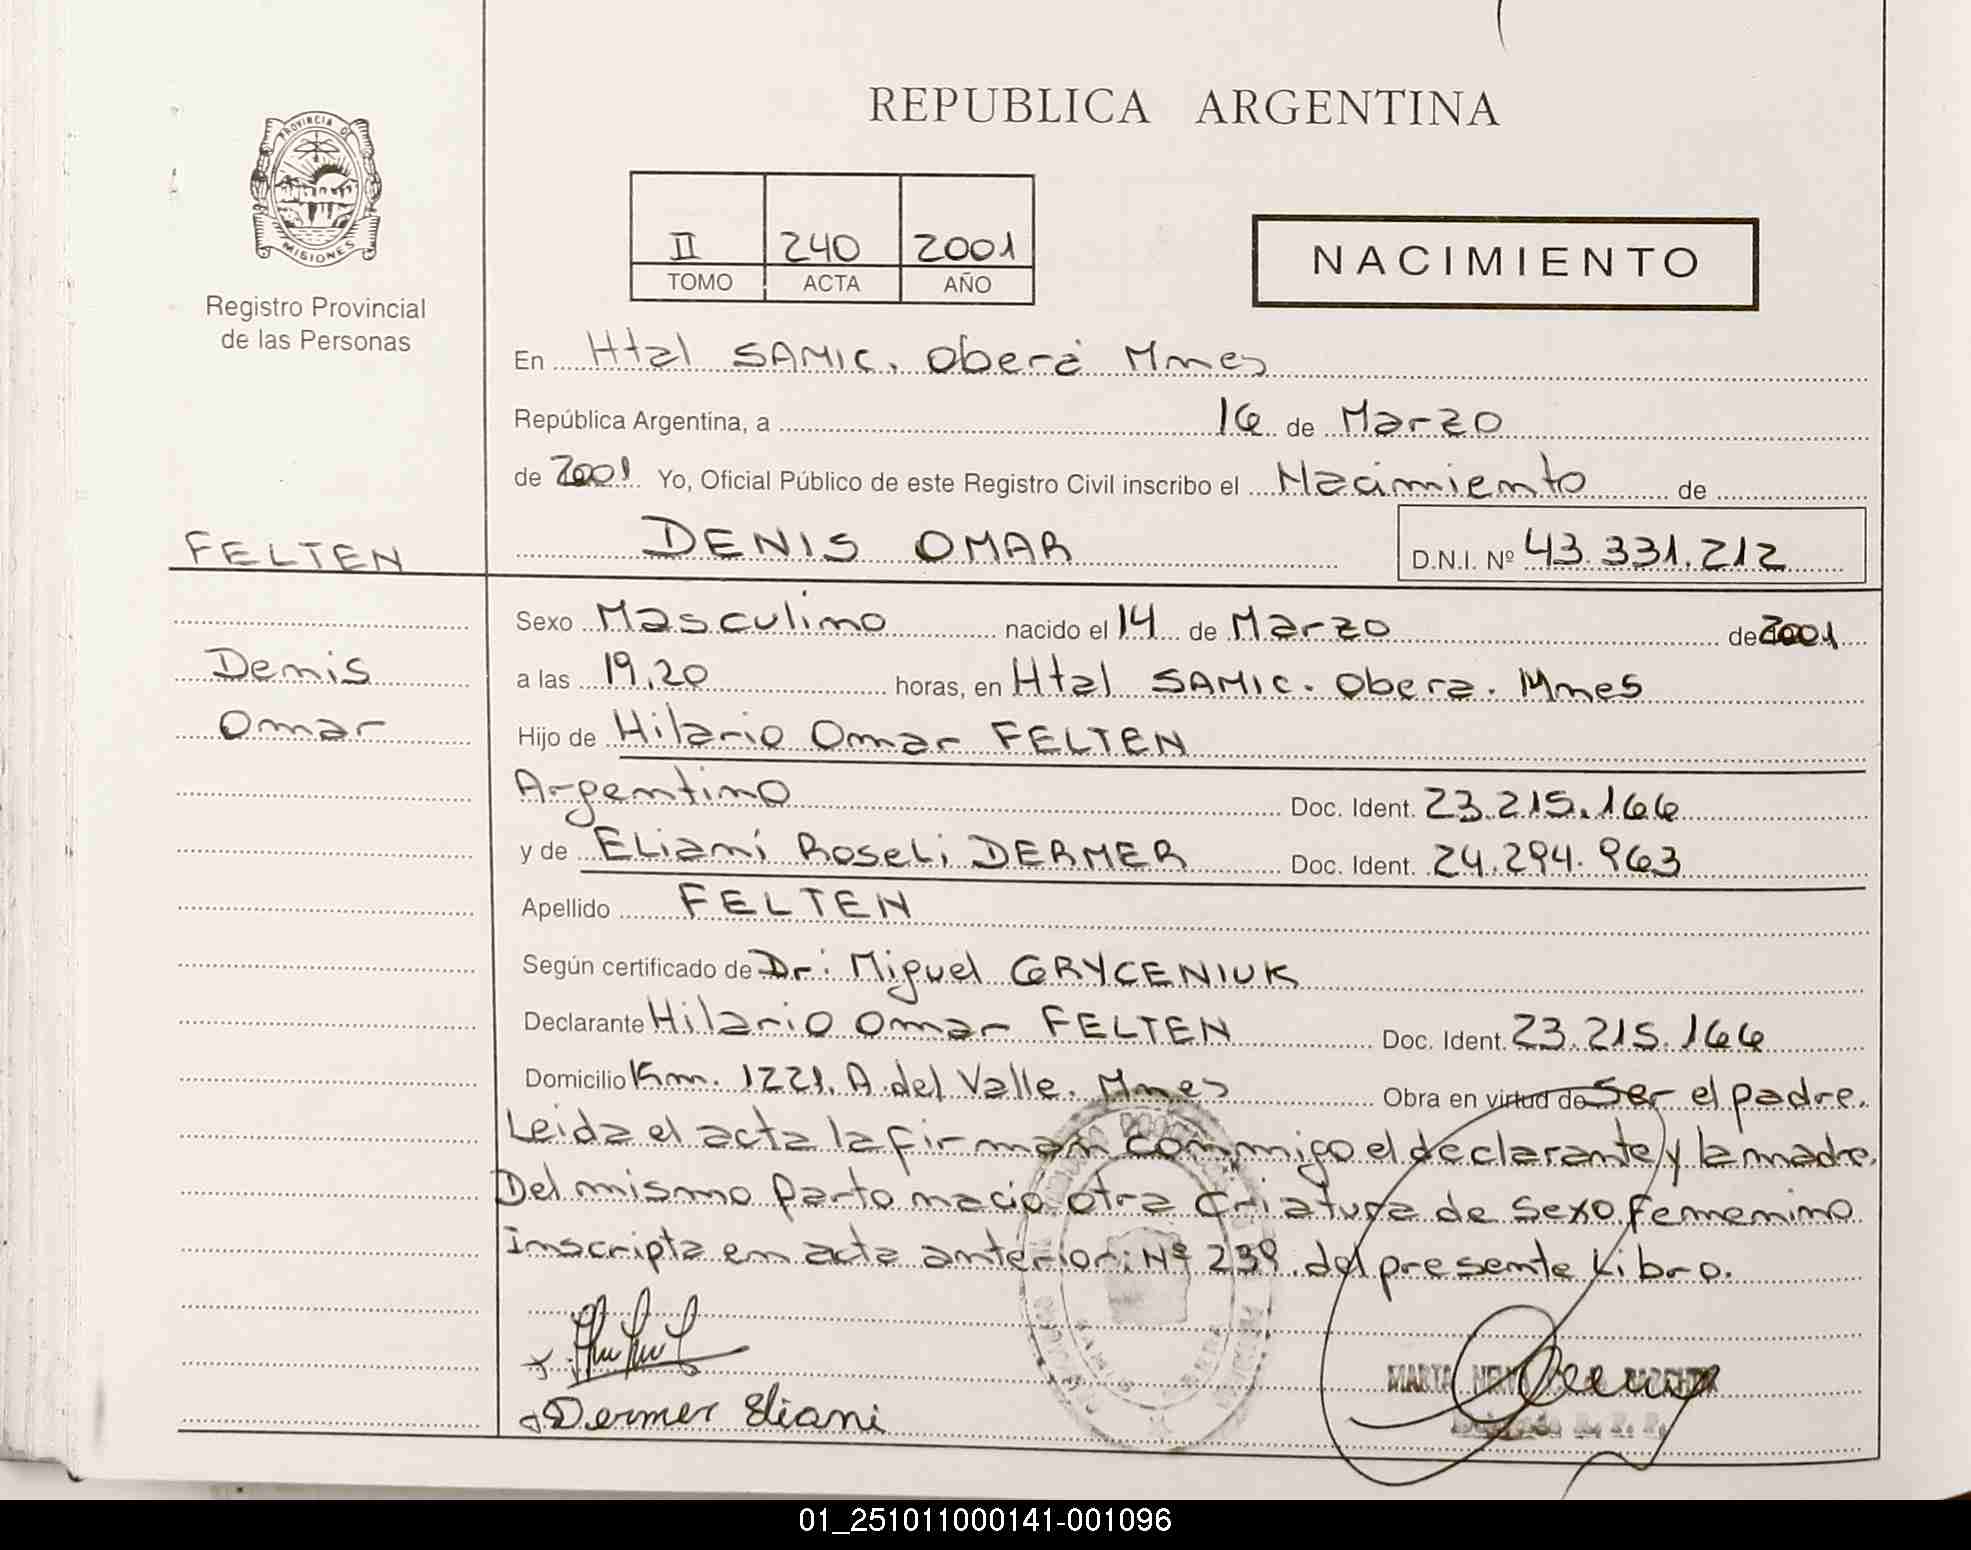 REPUBLICA ARGENTINA
PROVINCIA DE
MISIONES
Registro Provincial
de las Personas
II 240 2001
TOMO ACTA AÑO
NACIMIENTO
En Htal SAMIC. Oberá Mnes
República Argentina, a 16 de Marzo
de 2001 Yo, Oficial Público de este Registro Civil inscribo el Nacimiento de
FELTEN
DENIS OMAR D.N.I. Nº 43.331.212
Sexo Masculino nacido el 14 de Marzo de 2001
Denis
a las 19,20 horas, en Htal SAMIC. Obera. Mnes
Omar
Hijo de Hilario Omar FELTEN
Argentino Doc. Ident. 23.215.166
y de ELiani RoseLi DERMER Doc. Ident. 24.294.963
Apellido FELTEN
Según certificado de Dr: Miguel GRYCENIUK
Declarante Hilario Omar FELTEN Doc. Ident. 23.215.166
Domicilio Km. 1221. A. del Valle. Mnes Obra en virtud de Ser el padre.
Leida el acta la firman conmigo el declarante y la madre.
Del mismo parto nacio otra criatura de sexo femenino
Inscripta en acta anterior: Nº 239. del presente Libro.
MARTA
Dermer Eliani
01_251011000141-001096